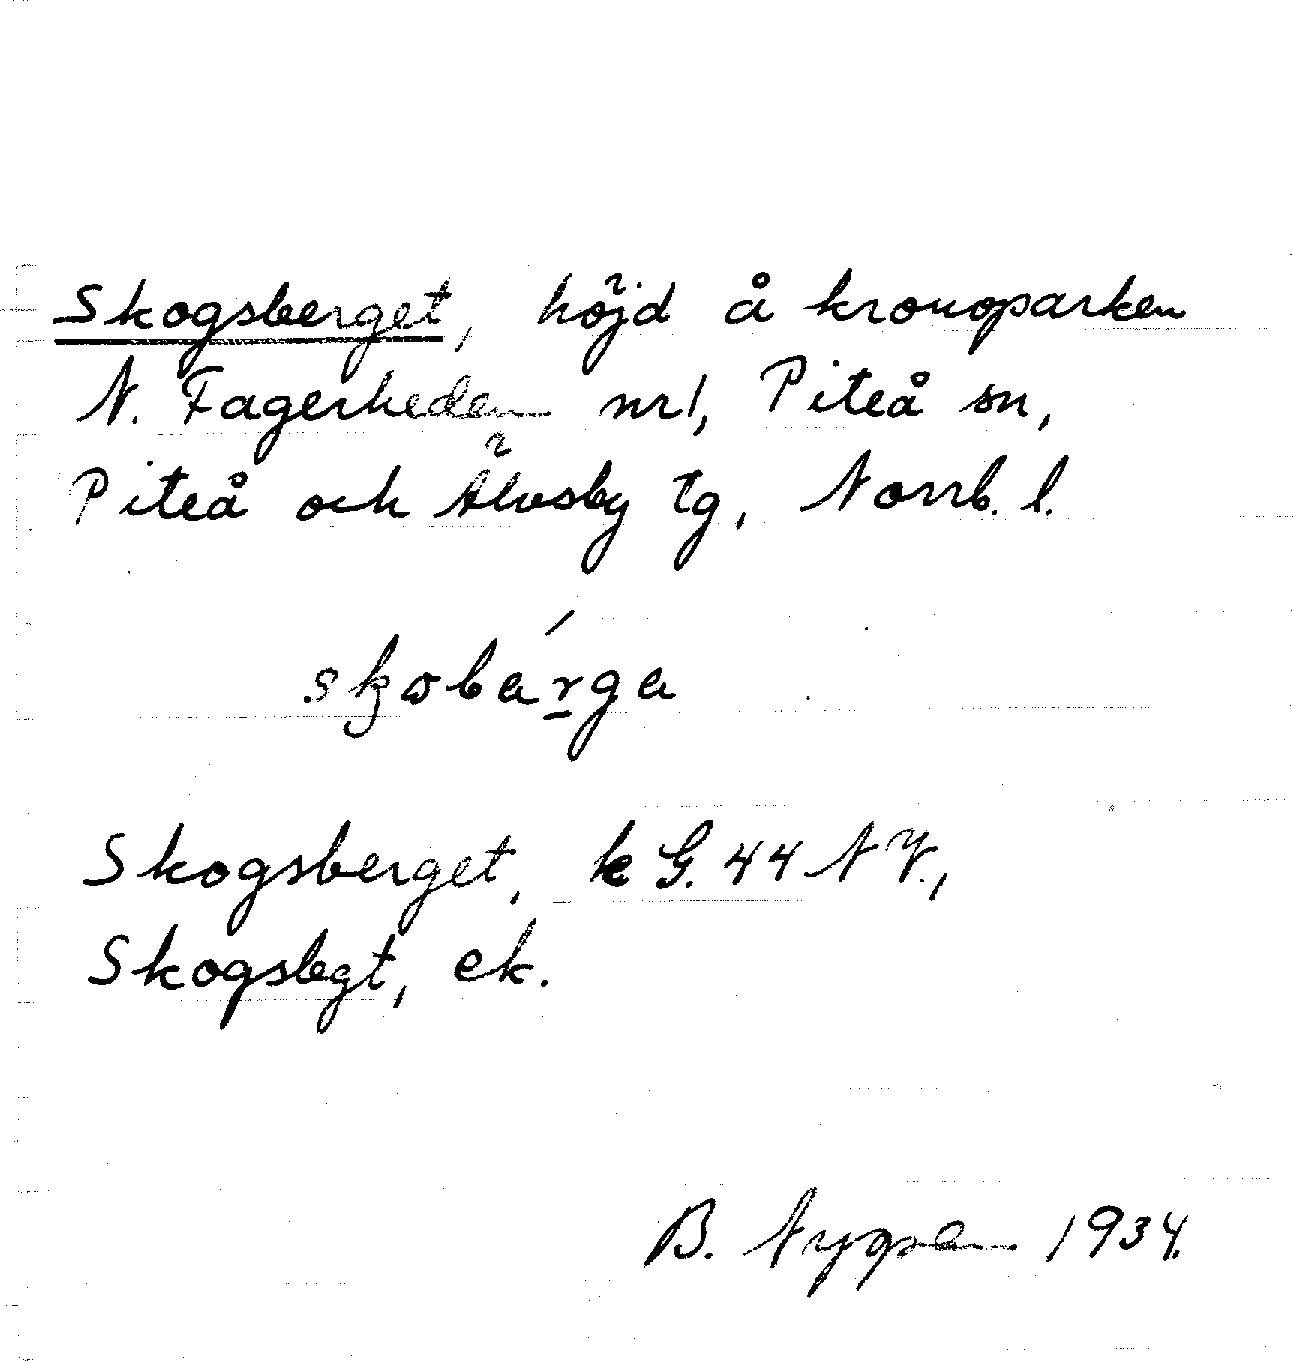 Skogsberget, höjd å kronoparken
N. Fagerheden nr 1, Piteå sn,
Piteå och Älvsby tg, Norrb. l.
skobárga
Skogsberget, k G. 44 NV.,
Skogsbgt, ek.
B. 1934.